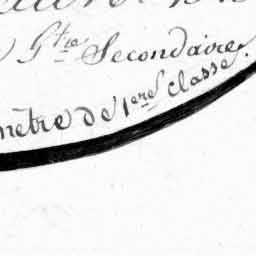 Gtre Secondaire.
mètre de 1eres classe